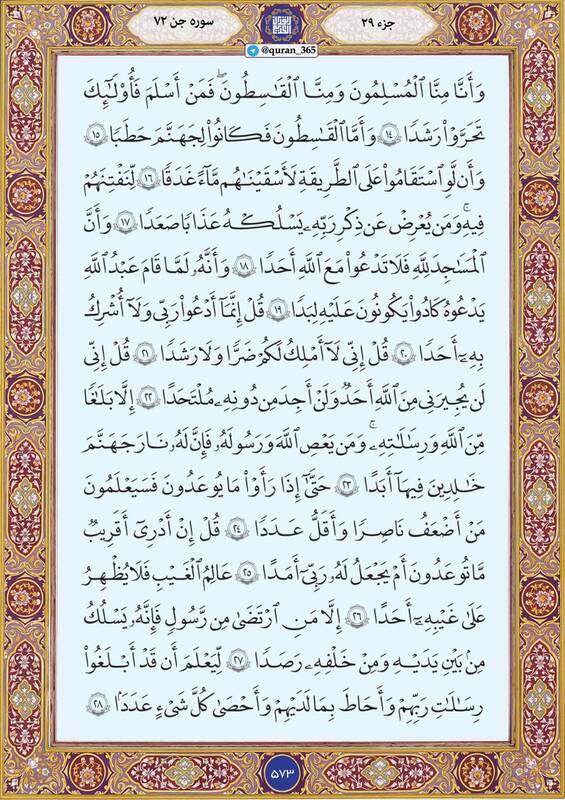 سوره جن ۷۲
جزء ۲۹
@quran_365
وَأَنَّا مِنَّا ٱلْمُسْلِمُونَ وَمِنَّا ٱلْقَـٰسِطُونَ ۖ فَمَنْ أَسْلَمَ فَأُو۟لَـٰٓئِكَ
تَحَرَّوْا۟ رَشَدًا ۱۴ وَأَمَّا ٱلْقَـٰسِطُونَ فَكَانُوا۟ لِجَهَنَّمَ حَطَبًا ۱۵
وَأَن لَّوِ ٱسْتَقَـٰمُوا۟ عَلَى ٱلطَّرِيقَةِ لَأَسْقَيْنَـٰهُم مَّآءً غَدَقًا ۱۶ لِّنَفْتِنَهُمْ
فِيهِ ۚ وَمَن يُعْرِضْ عَن ذِكْرِ رَبِّهِۦ يَسْلُكْهُ عَذَابًا صَعَدًا ۱۷ وَأَنَّ
ٱلْمَسَـٰجِدَ لِلَّهِ فَلَا تَدْعُوا۟ مَعَ ٱللَّهِ أَحَدًا ۱۸ وَأَنَّهُۥ لَمَّا قَامَ عَبْدُ ٱللَّهِ
يَدْعُوهُ كَادُوا۟ يَكُونُونَ عَلَيْهِ لِبَدًا ۱۹ قُلْ إِنَّمَآ أَدْعُوا۟ رَبِّى وَلَآ أُشْرِكُ
بِهِۦٓ أَحَدًا ۲۰ قُلْ إِنِّى لَآ أَمْلِكُ لَكُمْ ضَرًّا وَلَا رَشَدًا ۲۱ قُلْ إِنِّى
لَن يُجِيرَنِى مِنَ ٱللَّهِ أَحَدٌ وَلَنْ أَجِدَ مِن دُونِهِۦ مُلْتَحَدًا ۲۲ إِلَّا بَلَـٰغًا
مِّنَ ٱللَّهِ وَرِسَـٰلَـٰتِهِۦ ۚ وَمَن يَعْصِ ٱللَّهَ وَرَسُولَهُۥ فَإِنَّ لَهُۥ نَارَ جَهَنَّمَ
خَـٰلِدِينَ فِيهَآ أَبَدًا ۲۳ حَتَّىٰٓ إِذَا رَأَوْا۟ مَا يُوعَدُونَ فَسَيَعْلَمُونَ
مَنْ أَضْعَفُ نَاصِرًا وَأَقَلُّ عَدَدًا ۲۴ قُلْ إِنْ أَدْرِىٓ أَقَرِيبٌ
مَّا تُوعَدُونَ أَمْ يَجْعَلُ لَهُۥ رَبِّىٓ أَمَدًا ۲۵ عَـٰلِمُ ٱلْغَيْبِ فَلَا يُظْهِرُ
عَلَىٰ غَيْبِهِۦٓ أَحَدًا ۲۶ إِلَّا مَنِ ٱرْتَضَىٰ مِن رَّسُولٍ فَإِنَّهُۥ يَسْلُكُ
مِنۢ بَيْنِ يَدَيْهِ وَمِنْ خَلْفِهِۦ رَصَدًا ۲۷ لِّيَعْلَمَ أَن قَدْ أَبْلَغُوا۟
رِسَـٰلَـٰتِ رَبِّهِمْ وَأَحَاطَ بِمَا لَدَيْهِمْ وَأَحْصَىٰ كُلَّ شَىْءٍ عَدَدًۢا ۲۸
۵۷۳